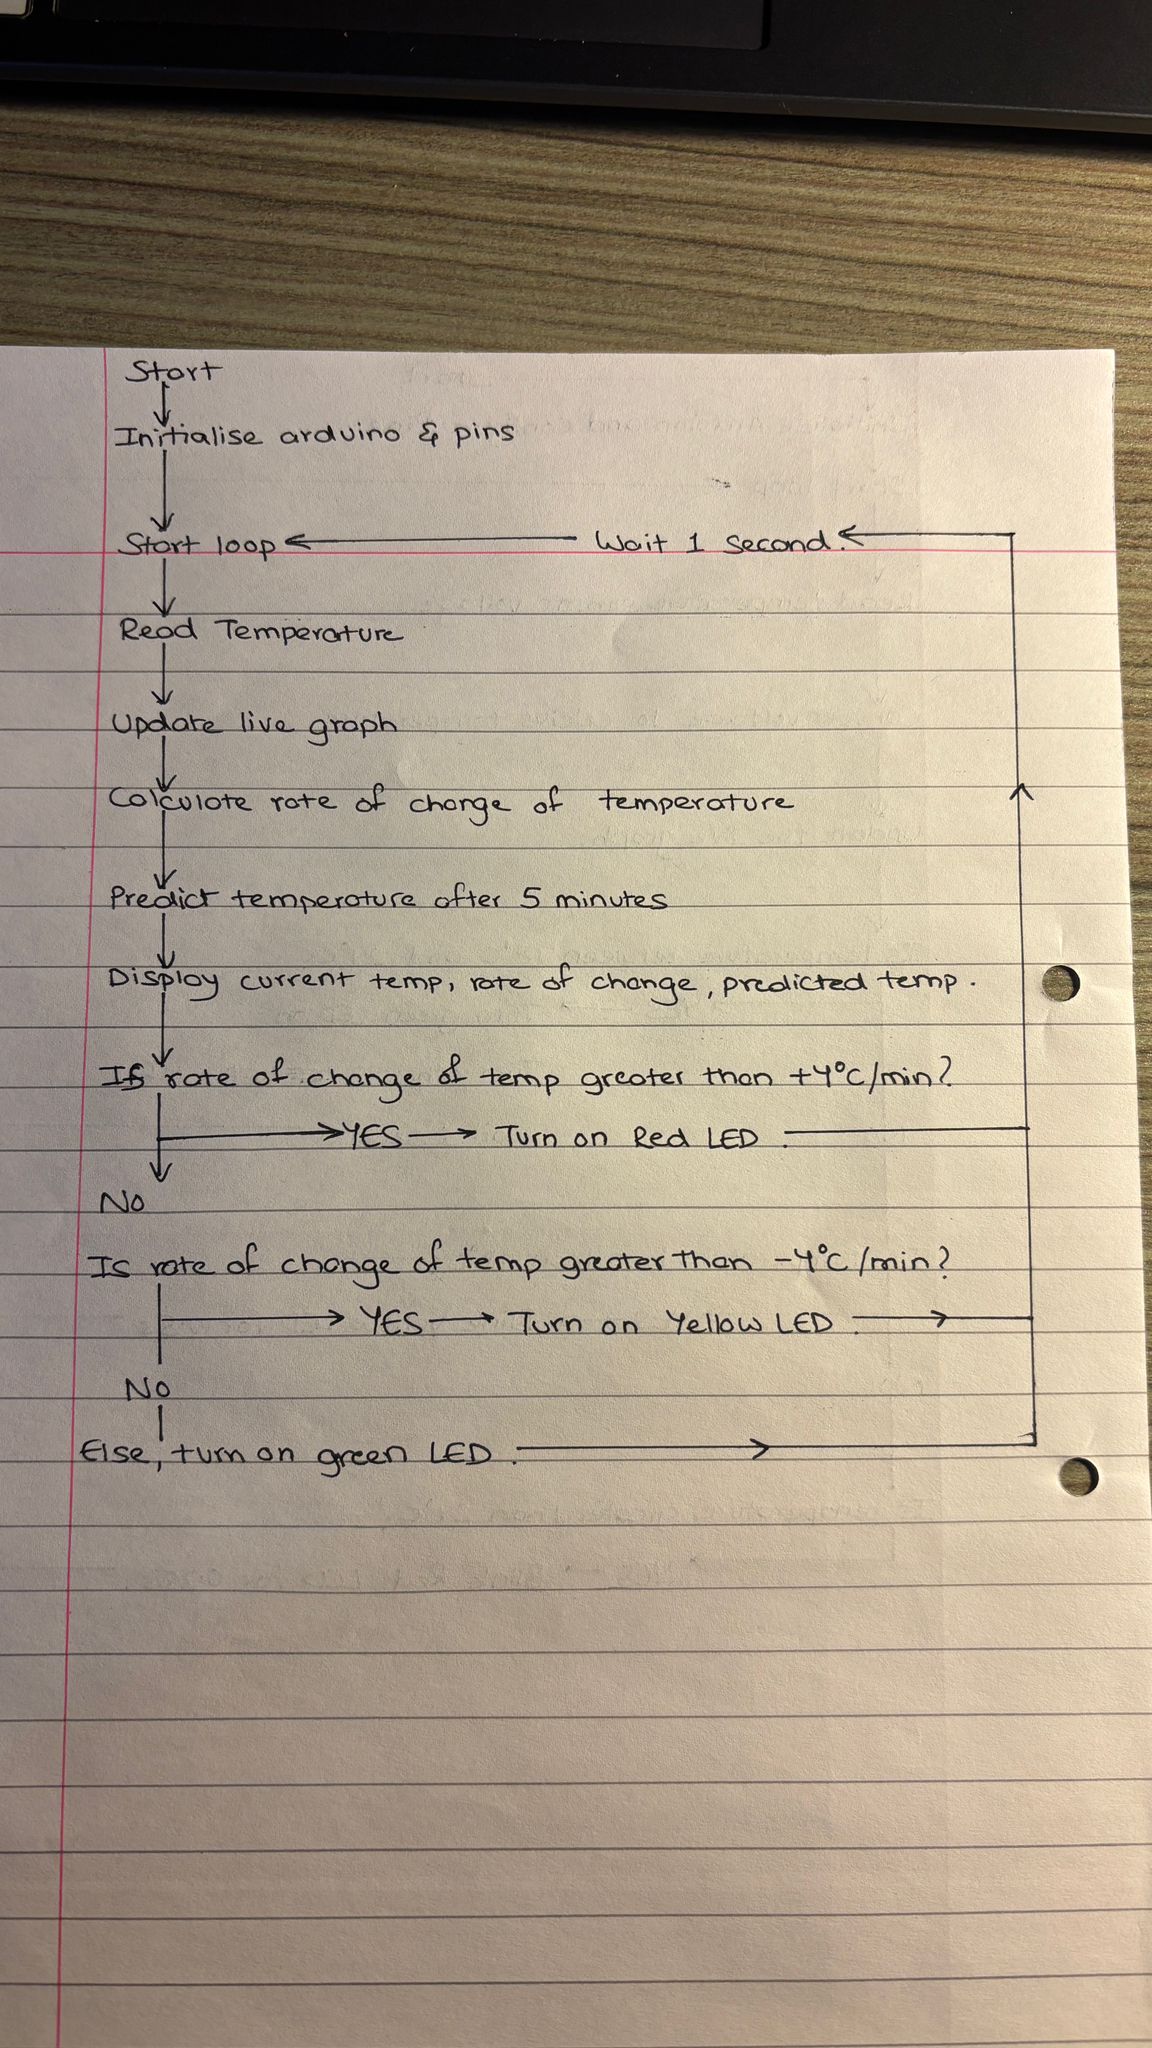 Start
Initialise arduino & pins
Start loop Wait 1 second.
Read Temperature
Update live graph
Calculate rate of change of temperature
Predict temperature after 5 minutes
Display current temp, rate of change, predicted temp.
If rate of change of temp greater than +4°C/min?
YES Turn on Red LED.
No
Is rate of change of temp greater than -4°C/min?
YES Turn on Yellow LED.
No
Else, turn on green LED.